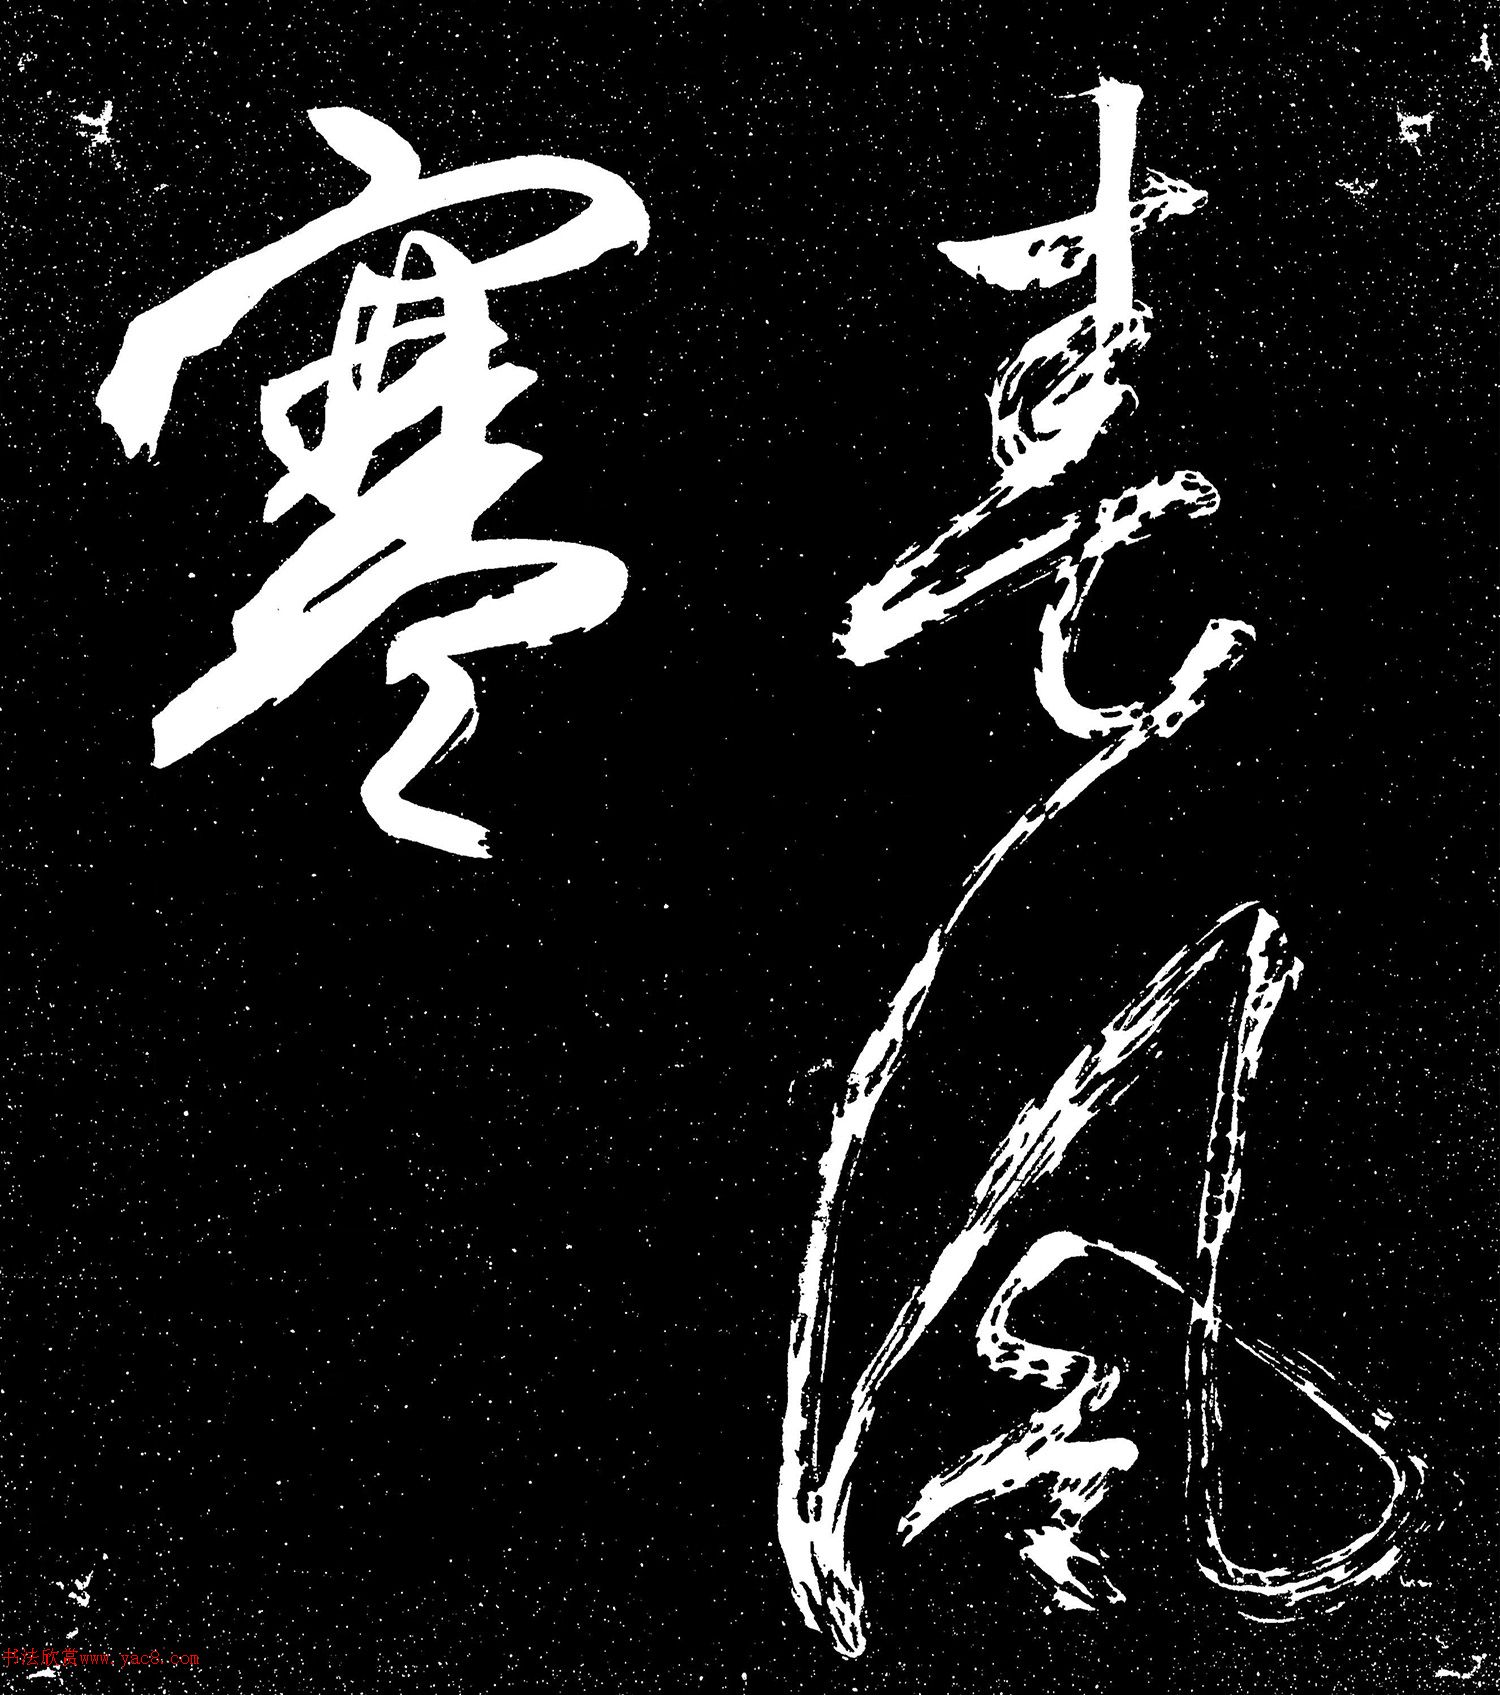 風
寒
书法欣赏www.yac8.com